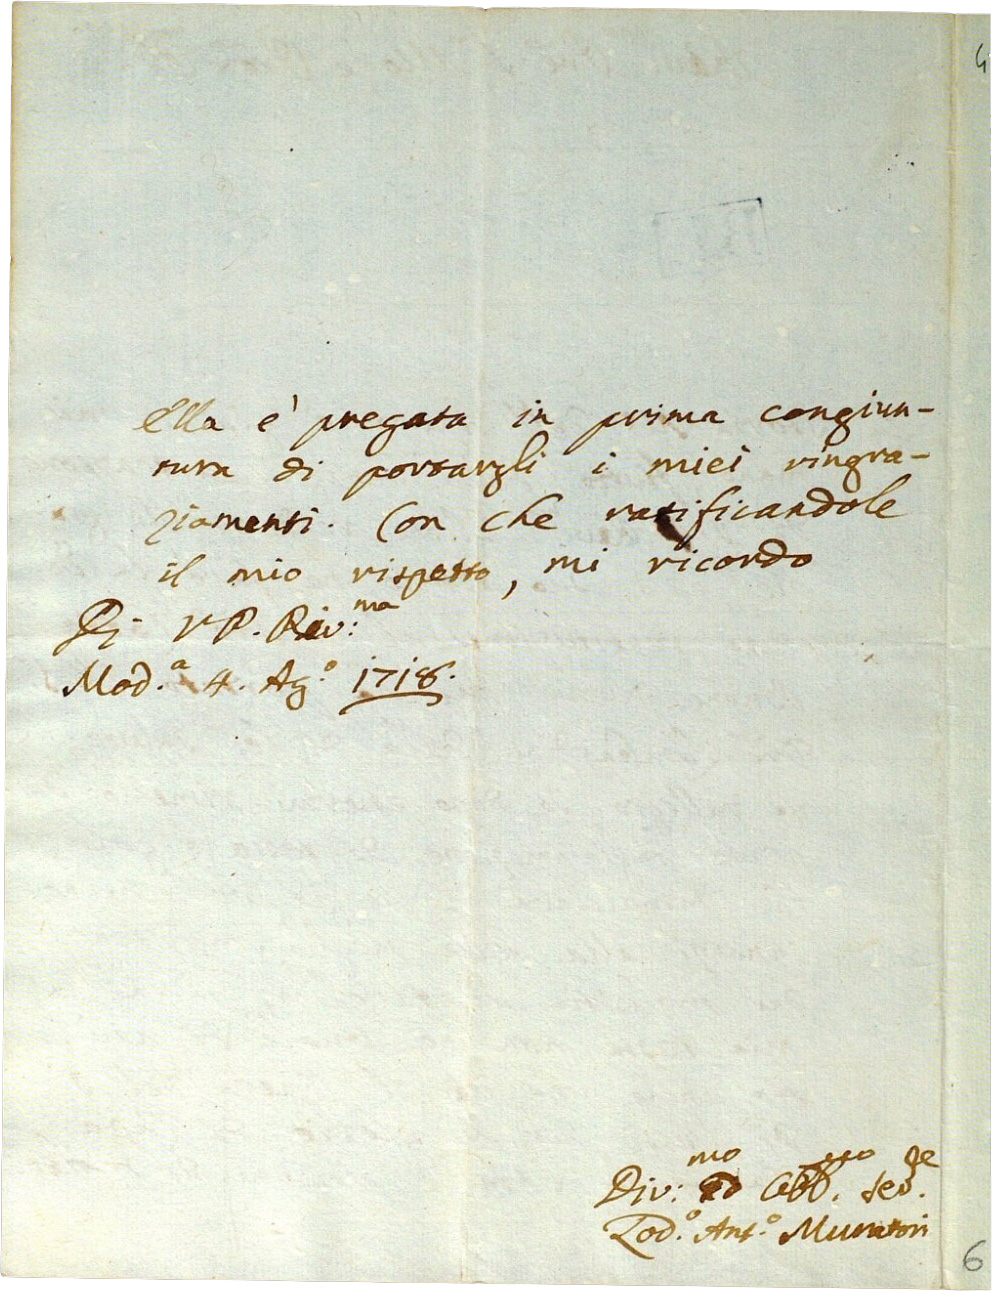 4
Ella è pregata in prima congiun-
tura di portargli i miei ringra-
ziamenti. Con che ratificandole
il mio rispetto, mi ricordo
Di V P. Rev:ma
Mod.a 4. Ag.o 1718.
Div:mo ed Obb.mo Ser.re
Lod.o Ant.o Muratori
6